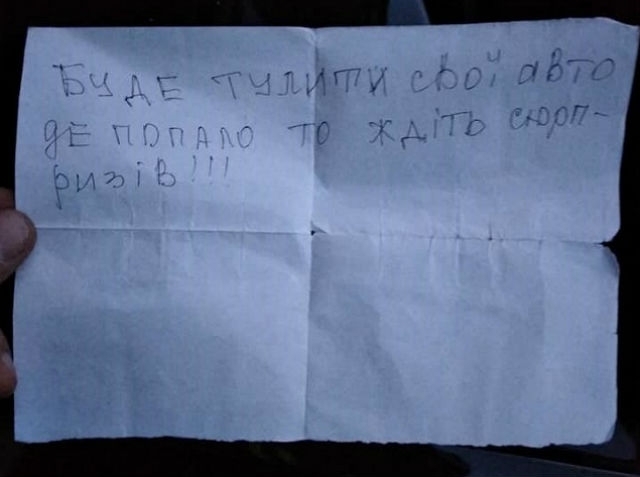 БУДЕ ТУЛИТИ свої авто
де попало то ждіть сюрп-
ризів!!!